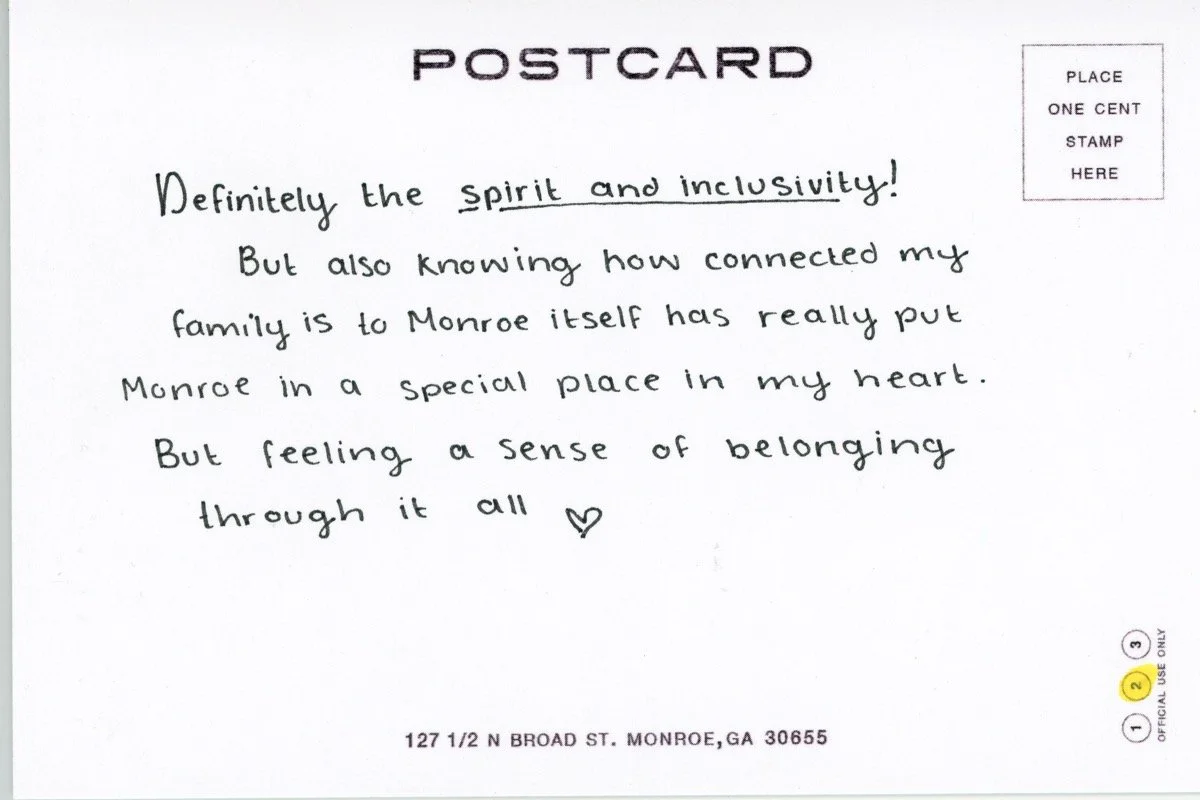 POSTCARD
PLACE
ONE CENT
STAMP
HERE
Definitely the spirit and inclusivity!
But also knowing how connected my
family is to Monroe itself has really put
Monroe in a special place in my heart.
But feeling a sense of belonging
through it all ♡
127 1/2 N BROAD ST. MONROE, GA 30655
1 2 3
OFFICIAL USE ONLY